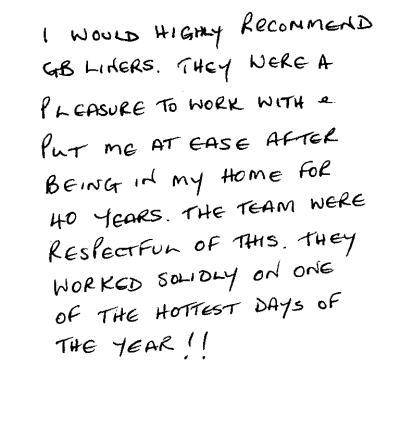 I WOULD HIGHLY RECOMMEND
GB LINERS. THEY WERE A
PLEASURE TO WORK WITH &
PUT ME AT EASE AFTER
BEING IN MY HOME FOR
40 YEARS. THE TEAM WERE
RESPECTFUL OF THIS. THEY
WORKED SOLIDLY ON ONE
OF THE HOTTEST DAYS OF
THE YEAR!!